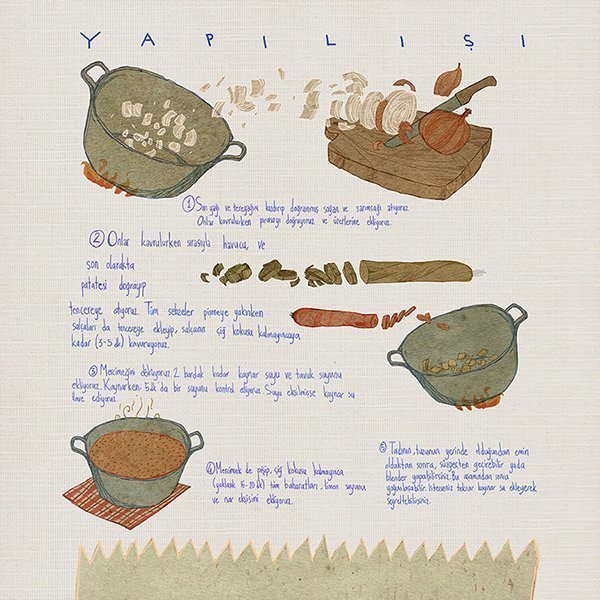 YAPILIŞI
① Sıvı yağı ve tereyağını kızdırıp doğranmış soğan ve sarımsağı atıyoruz.
Onlar kavrulurken pırasayı doğruyoruz ve üzerlerine ekliyoruz.
② Onlar kavrulurken sırasıyla havucu, ve
son olarakta
patatesi doğrayıp
tencereye atıyoruz. Tüm sebzeler pişmeye yakınken
salçaları da tencereye ekleyip, salçanın çiğ kokusu kalmayıncaya
kadar (3-5 dk) kavuruyoruz.
③ Mercimeğini döküyoruz. 2 bardak kadar kaynar suyu ve tavuk suyunu
ekliyoruz. Kaynarken 5 dk da bir suyunu kontrol ediyoruz. Suyu eksilmişse kaynar su
ilave ediyoruz.
④ Mercimek de pişip, çiğ kokusu kalmayınca
(yaklaşık 15-20 dk) tüm baharatları, limon suyunu
ve nar ekşisini ekliyoruz.
⑤ Tadının, tuzunun yerinde olduğundan emin
olduktan sonra, süzgeçten geçirebilir yada
blender yapabilirsiniz. Bu aşamadan sonra
yoğunlaşabilir. İsterseniz tekrar kaynar su ekleyerek
seyreltebilirsiniz.